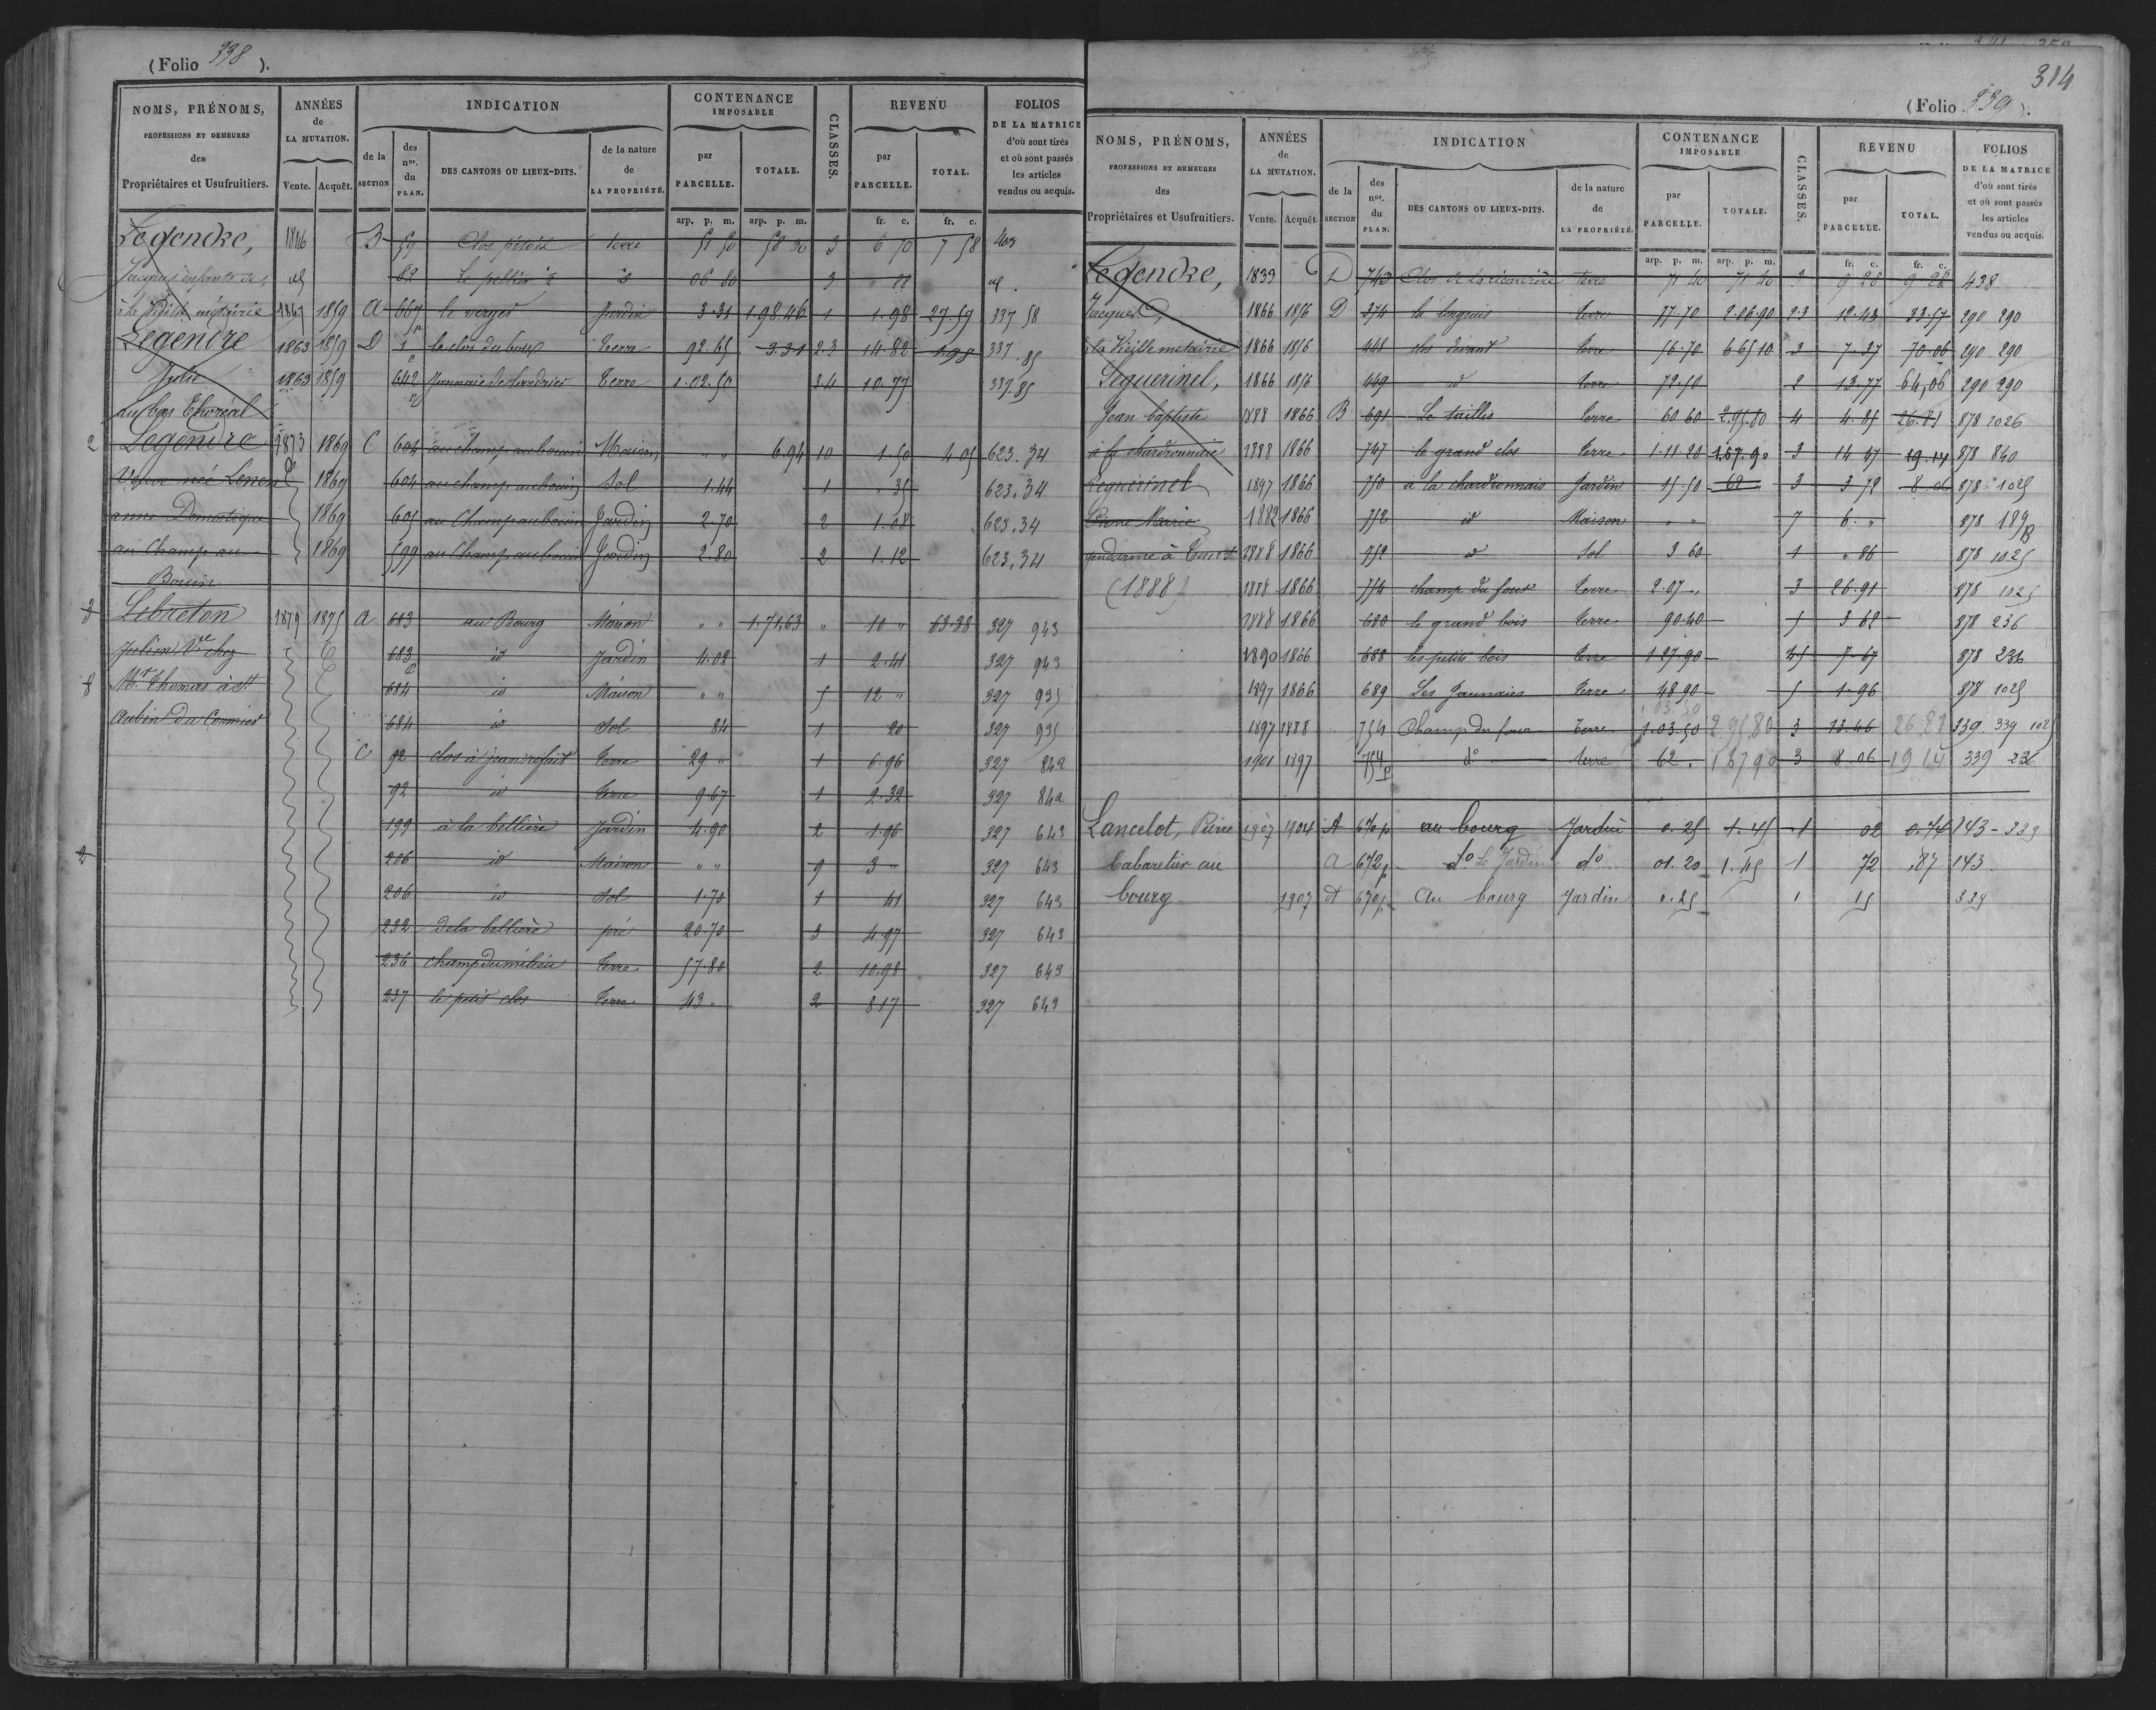 (Folio 338 ).
NOMS, PRÉNOMS, PROFESSIONS ET DEMEURES des Propriétaires et Usufruitiers.
ANNÉES de LA MUTATION. Vente. Acquêt.
INDICATION de la SECTION des nos. du PLAN. DES CANTONS OU LIEUX-DITS. de la nature de LA PROPRIÉTÉ.
CONTENANCE IMPOSABLE par PARCELLE. TOTALE.
CLASSES.
REVENU par PARCELLE. TOTAL.
FOLIOS DE LA MATRICE d'où sont tirés et où sont passés les articles vendus ou acquis.
arp. p. m. arp. p. m. fr. c. fr. c.
Legendre, 1846 B 59 Clos terre 51 50 58 30 3 6 70 7 58 403
Jacques enfants de, id 62 le id 06 80 3 " 88 id.
à la Vieille métairie 1867 1859 A 667 le verger Jardin 3.31 1.98.46 1 1.98 27.57 337 58
Legendre 1863 1859 D 1 le clos du Terre 92.65 3.31 2.3 14.82 1.98 337.85
Julie 1863 1859 642 Terre 1.02.50 3.4 10.77 337.85
au bas Thoréal
2 Legendre 1873 1869 C 604 au champ aubouin Maison " " 6.94 10 1.50 4.05 623.34
Veuve née 1869 604 au champ aubouin Sol 1.44 1 " 35 623.34
anne Domestique 1869 605 au Champ aubouin Jardin 2.70 2 1.08 623.34
au Champ au 1869 599 au Champ aubouin Jardin 2.80 2 1.12 623.34
Bouin
3 Lebreton 1879 1875 A 683 au Bourg Maison " " 1.71.63 " 10 " 63.38 327 943
Julien Ve chez 683 id Jardin 4.02 1 2.41 327 943
8 Mr Thomas à St 684 id Maison " " 5 12 " 327 935
Aubin du Cormier 684 id Sol 84 1 20 327 935
C 92 clos à jean refait Terre 29 " 1 6.96 327 842
92 id Terre 9.67 1 2.32 327 842
199 à la bellière Jardin 4.90 2 1.96 327 643
2 206 id Maison " " 9 3 " 327 643
206 id Sol 1.70 1 41 327 643
232 de la bellière pré 20.70 3 4.97 327 643
236 champ du milieu Terre 57.80 2 10.98 327 643
237 le petit clos Terre 43 " 2 8 17 327 643
314
(Folio 339 ).
NOMS, PRÉNOMS, PROFESSIONS ET DEMEURES des Propriétaires et Usufruitiers.
ANNÉES de LA MUTATION. Vente. Acquêt.
INDICATION de la SECTION des nos. du PLAN. DES CANTONS OU LIEUX-DITS. de la nature de LA PROPRIÉTÉ.
CONTENANCE IMPOSABLE par PARCELLE. TOTALE.
CLASSES.
REVENU par PARCELLE. TOTAL.
FOLIOS DE LA MATRICE d'où sont tirés et où sont passés les articles vendus ou acquis.
arp. p. m. arp. p. m. fr. c. fr. c.
Legendre, 1839 D 743 Clos de la Terre 71 40 71 40 3 9 28 9 28 438
Jacques, 1866 1856 D 374 la Terre 77.70 2.06.90 2.3 12.43 33.57 290 290
à la Vieille metairie 1866 1856 448 clos devant Terre 56.70 6 65 10 3 7.37 70.06 290 290
Leguerinel, 1866 1856 449 id Terre 72.50 2 13.77 64,06 290 290
Jean baptiste 1888 1866 B 691 Le taillis Terre 60 60 2.95.80 4 4.85 26.81 878 1026
à la chardronnaie 1888 1866 747 le grand clos Terre 1.11.20 1.67.90 3 14 47 19.14 878 840
Leguerinel 1897 1866 750 à la chardronnais Jardin 15.50 62 " 3 3 72 8 06 878 1025
Pierre Marie 1882 1866 752 id Maison " " 7 6. " 878 189
gendarme à 1888 1866 752 id Sol 3 60 1 " 86 878 1025
(1888) 1888 1866 754 champ du four Terre 2.07 " 3 26.91 878 1025
1888 1866 680 le grand bois Terre 90.40 5 3 62 878 236
1890 1866 688 les petits bois Terre 1.27.90 4.5 7.67 878 236
1897 1866 689 Les Jannaies Terre 48 90 5 1.96 878 1025
1897 1888 754 Champ du four Terre 1.03.50 2 95 80 3 13.46 26 81 339. 339 1025
1901 1897 754 p do Terre 62. 1 67 90 3 8.06 19 14 339 236
Lancelot, Pierre 1907 1904 A 670 p au bourg Jardin 0.25 1.45 1 02 0.74 143 - 339
Cabaretier au A 672 p do Le Jardin do 01.20 1.45 1 72 ,87 143.
bourg 1907 A 670 p Au bourg Jardin 0.25 1 15 339